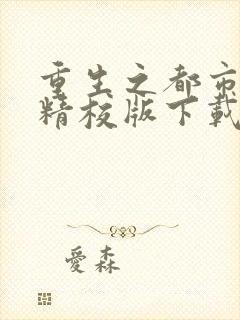 重生之都市
精校版下載
愛森